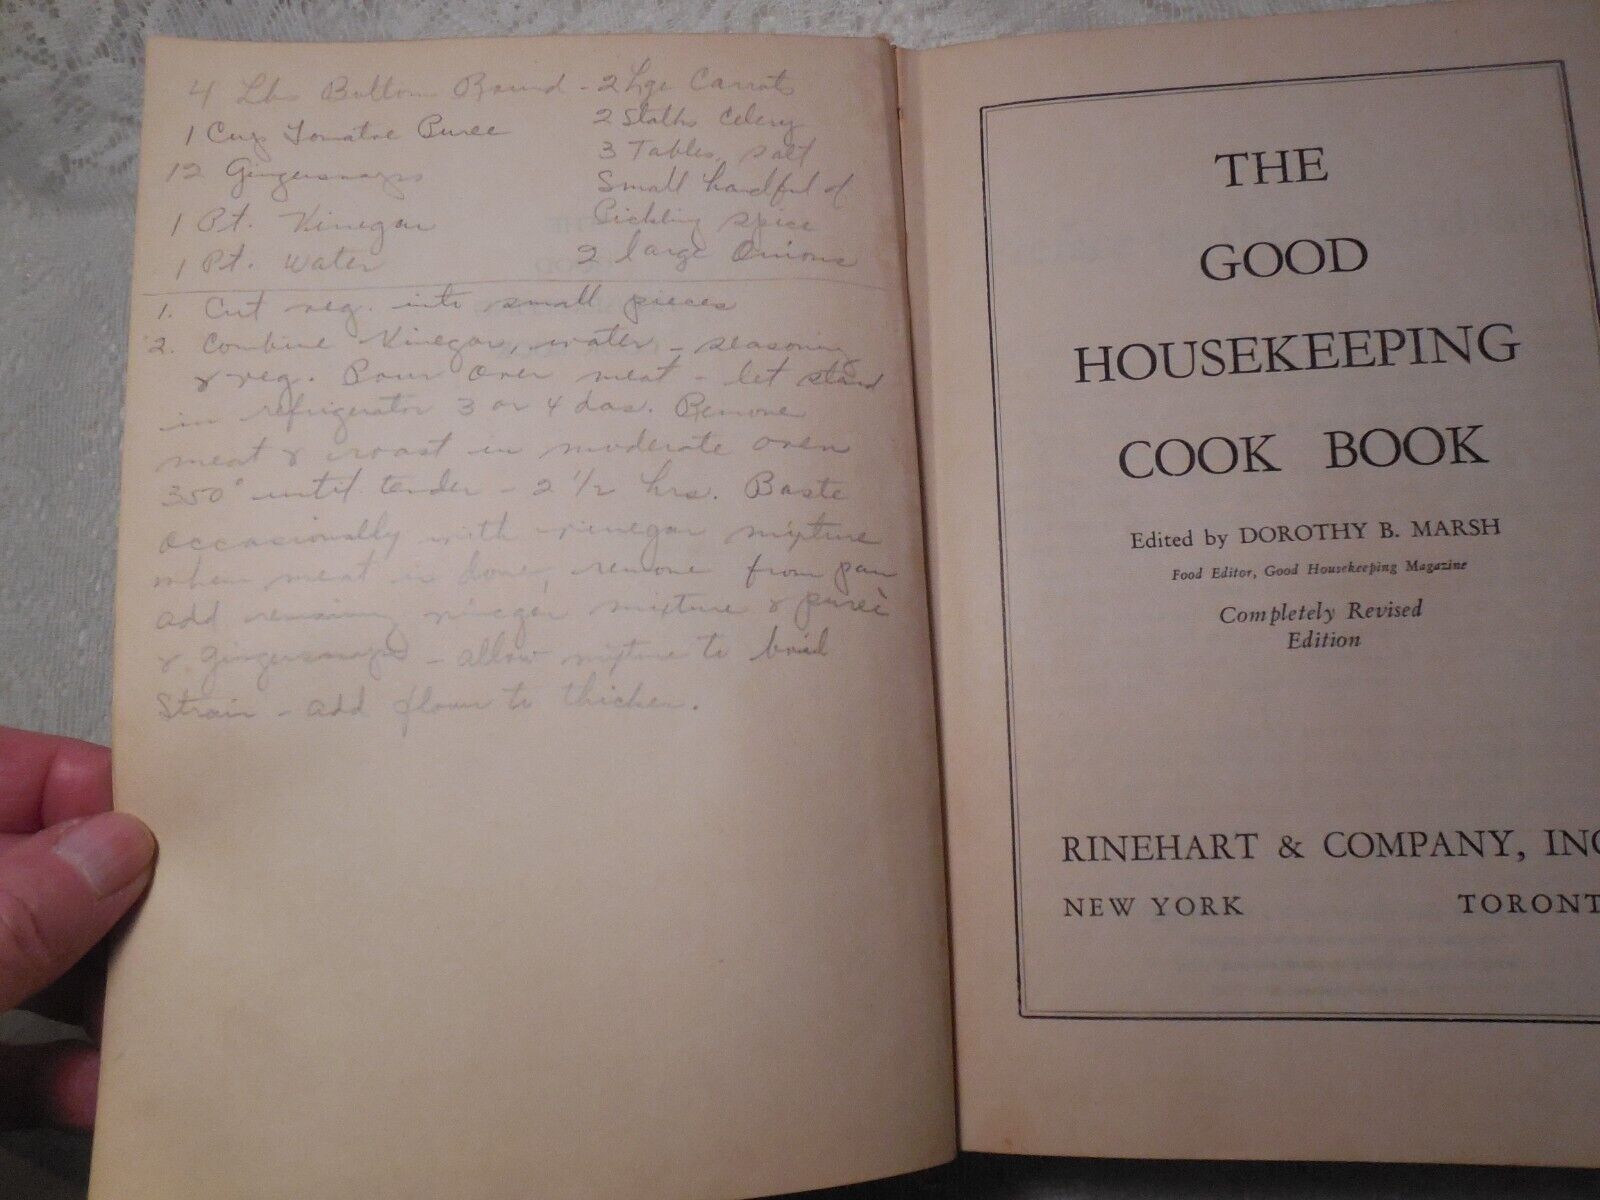 4 Lbs Bottom Round - 2 Lge Carrots
1 Cup Tomatoe Puree
2 Stalks Celery
12 Gingersnaps
3 Tables. salt
Small handful of
1 Pt. Vinegar
Pickling spice
1 Pt. Water
2 large Onions
1. Cut veg. into small pieces
2. Combine Vinegar, water - seasoning
& veg. Pour over meat - let stand
in refrigerator 3 or 4 das. Remove
meat & roast in moderate oven
350° until tender - 2 1/2 hrs. Baste
occasionally with vinegar mixture
when meat is done, remove from pan
add vinegar mixture & pureé
& Gingersnaps - allow mixture to
Strain - add flour to thicken.
THE
GOOD
HOUSEKEEPING
COOK BOOK
Edited by DOROTHY B. MARSH
Food Editor, Good Housekeeping Magazine
Completely Revised
Edition
RINEHART & COMPANY, INC
NEW YORK TORONT